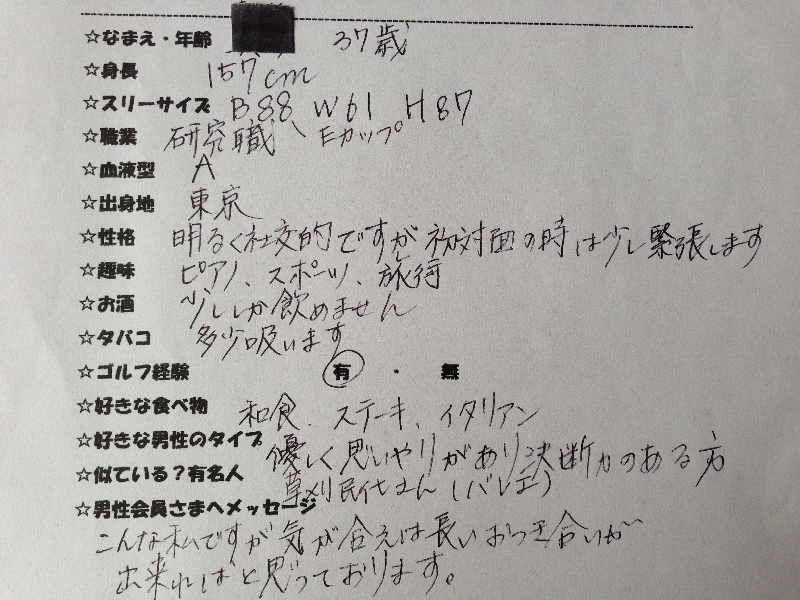 ☆なまえ・年齢 37歳
☆身長 157cm
☆スリーサイズ B 88 W 61 H 87
☆職業 研究職 Eカップ
☆血液型 A
☆出身地 東京
☆性格 明るく社交的ですが初対面の時は少し緊張します
☆趣味 ピアノ、スポーツ、旅行
☆お酒 少ししか飲めません
☆タバコ 多少吸います
☆ゴルフ経験 有 ・ 無
☆好きな食べ物 和食、ステーキ、イタリアン
☆好きな男性のタイプ 優しく思いやりがあり決断力のある方
☆似ている?有名人 草刈民代さん(バレエ)
☆男性会員さまへメッセージ
こんな私ですが気が合えば長いおつき合いが
出来ればと思っております。